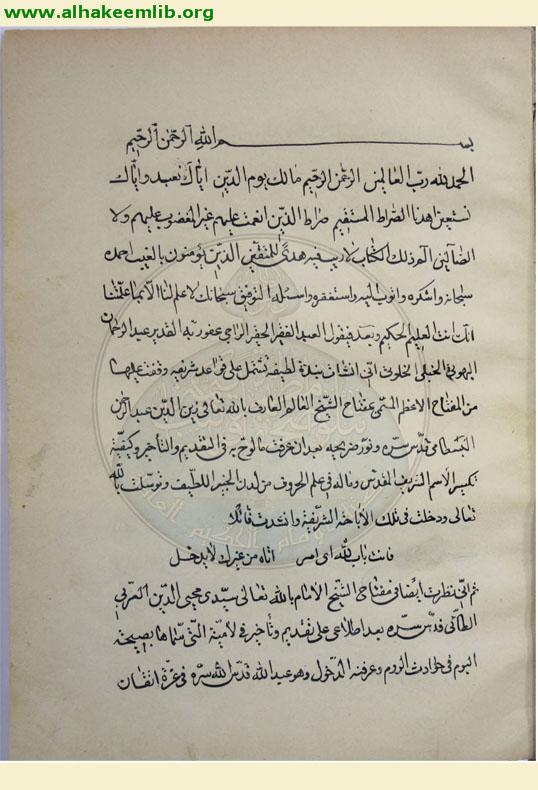 www.alhakeemlib.org
بسم الله الرحمن الرحيم
الحمد لله رب العالمين الرحمن الرحيم مالك يوم الدين اياك نعبد واياك
نستعين اهدنا الصراط المستقيم صراط الذين انعمت عليهم غير المغضوب عليهم ولا
الضالين الم ذلك الكتاب لا ريب فيه هدى للمتقين الذين يؤمنون بالغيب احمده
سبحانه واشكره واتوب اليه واستغفره واسئله التوفيق سبحانك لا علم لنا الا ما علمتنا
انك انت العليم الحكيم وبعد فيقول العبد الفقير الحقير الراجي عفو ربه القدير عبد الرحمان
الحنبلي الخلوتي اني انشات نبذة لطيفة تشتمل على قواعد شريفة وقفت عليها
من المفتاح الاعظم المسمى بمفتاح الشيخ العالم العارف بالله تعالى زين الدين عبد الرحمن
البسطامي قدس سره ونور ضريحه بعد ان عرفت ما لوح به في التقديم والتأخير وكيفية
تكسير الاسم الشريف المقدس وماله في علم الحروف من لدن الخبير اللطيف وتوسلت بالله
تعالى ودخلت في تلك الشريفة وانشدت قائلا
فانت باب الله اى امرء اتاه من غيرك لا يدخل
ثم اني نظرت ايضا في مفتاح الشيخ الامام بالله تعالى سيدي محيي الدين العربي
الطائي قدس سره بعد اطلاعي على تقديم وتأخير في لامية التي سماها بصيحة
البوم في حوادث الروم وعرفنه الدخول وهو عبد الله قدس الله سره في غرة